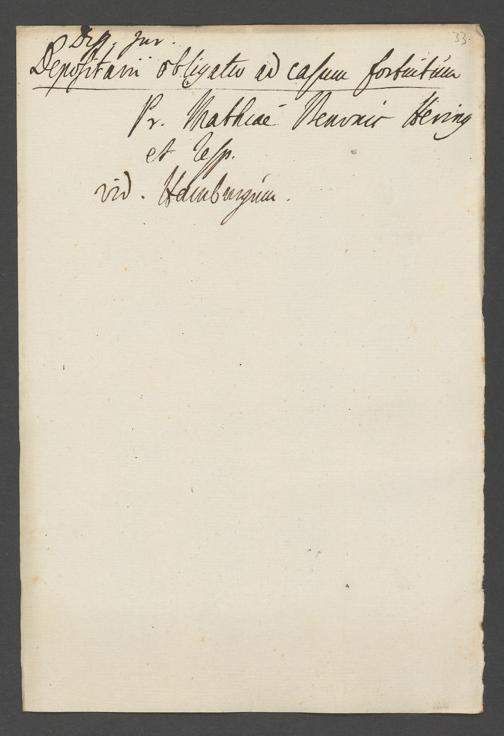 33.
Diss. jur.
Depositarii obligatio ad casum fortuitum
Pr. Mathiae Hering
et Resp.
vid. Hamburgum.